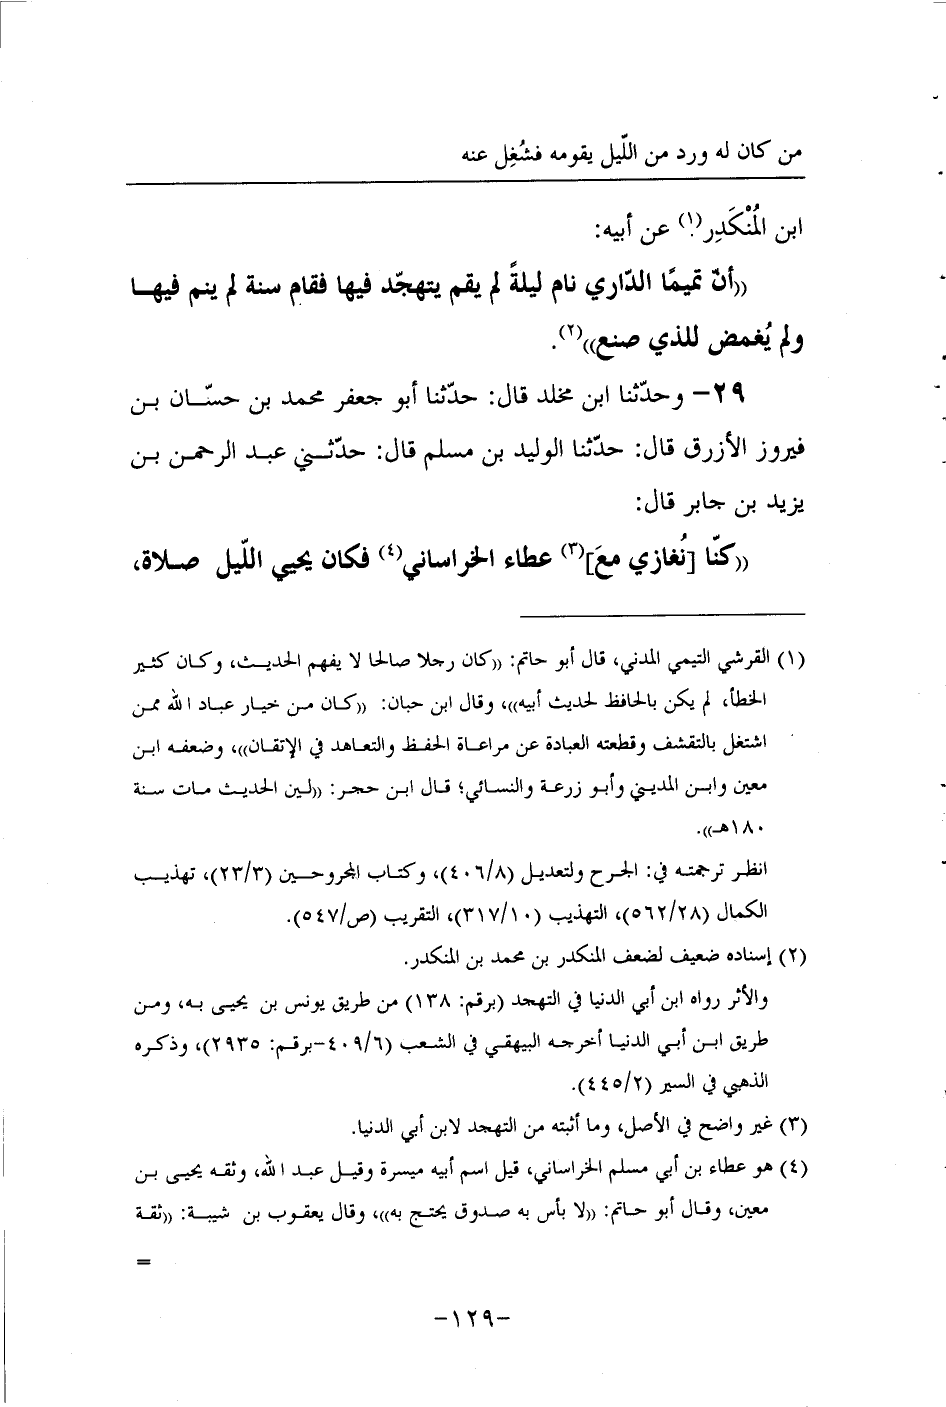 من كان له ورد من اللّيل يقومه فشُغِل عنه
ابن المُنْكَدِر(١) عن أبيه:
((أنّ تميمًا الدّاري نام ليلةً لم يقم يتهجّد فيها فقام سنة لم ينم فيهـا
ولم يُغمض للذي صنع))(٢).
٢٩- وحدّثنا ابن مخلد قال: حدّثنا أبو جعفر محمد بن حسّـان بـن
فيروز الأزرق قال: حدّثنا الوليد بن مسلم قال: حدّثـني عبـد الرحمـن بـن
يزيد بن جابر قال:
((كنّا [نُغازي معَ](٣) عطاء الخراساني(٤) فكان يحيي اللّيل صـلاة،
(١) القرشي التيمي المدني، قال أبو حاتم: ((كان رجلا صالحا لا يفهم الحديـث، وكـان كثـير
الخطأ، لم يكن بالحافظ لحديث أبيه))، وقال ابن حبان: ((كـان مـن خيـار عبـاد الله ممـن
اشتغل بالتقشف وقطعته العبادة عن مراعـاة الحفـظ والتعـاهد في الإتقـان))، وضعفـه ابـن
معين وابـن المديـني وأبـو زرعـة والنسـائي؛ قـال ابـن حجـر: ((لـين الحديـث مـات سـنة
١٨٠هـ)).
انظـر ترجمتـه في: الجـرح ولتعديـل (٤٠٦/٨)، وكتـاب المجروحـين (٢٣/٣)، تهذيـب
الكمال (٥٦٢/٢٨)، التهذيب (٣١٧/١٠)، التقريب (ص/٥٤٧).
(٢) إسناده ضعيف لضعف المنكدر بن محمد بن المنكدر.
والأثر رواه ابن أبي الدنيا في التهجد (برقم: ١٣٨) من طريق يونس بن يحيـى بـه، ومـن
طريق ابـن أبـي الدنيـا أخرجـه البيهقـي في الشـعب (٤٠٩/٦-برقـم: ٢٩٣٥)، وذكـره
الذهبي في السير (٤٤٥/٢).
(٣) غير واضح في الأصل، وما أثبته من التهجد لابن أبي الدنيا.
(٤) هو عطاء بن أبي مسلم الخراساني، قيل اسم أبيه ميسرة وقيـل عبـد الله، وثقـه يحيـى بـن
معين، وقـال أبو حـاتم: ((لا بأس به صـدوق يحتـج به))، وقال يعقـوب بن شيبـة: ((ثقـة
=
-١٢٩-